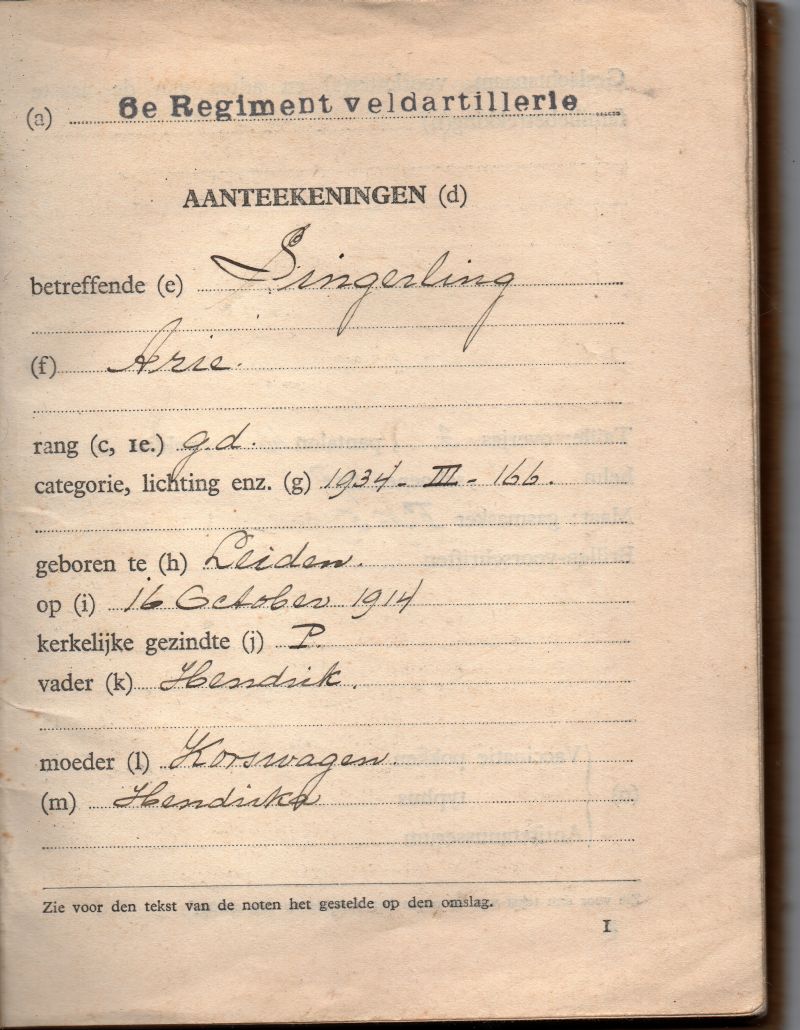 (a) 6e Regiment veldartillerie
AANTEEKENINGEN (d)
betreffende (e) Singerling
(f) Arie.
rang (c, 1e.) gd.
categorie, lichting enz. (g) 1934 - III - 166.
geboren te (h) Leiden.
op (i) 16 October 1914
kerkelijke gezindte (j) P.
vader (k) Hendrik.
moeder (l) Korswagen.
(m) Hendrika
Zie voor den tekst van de noten het gestelde op den omslag.
1